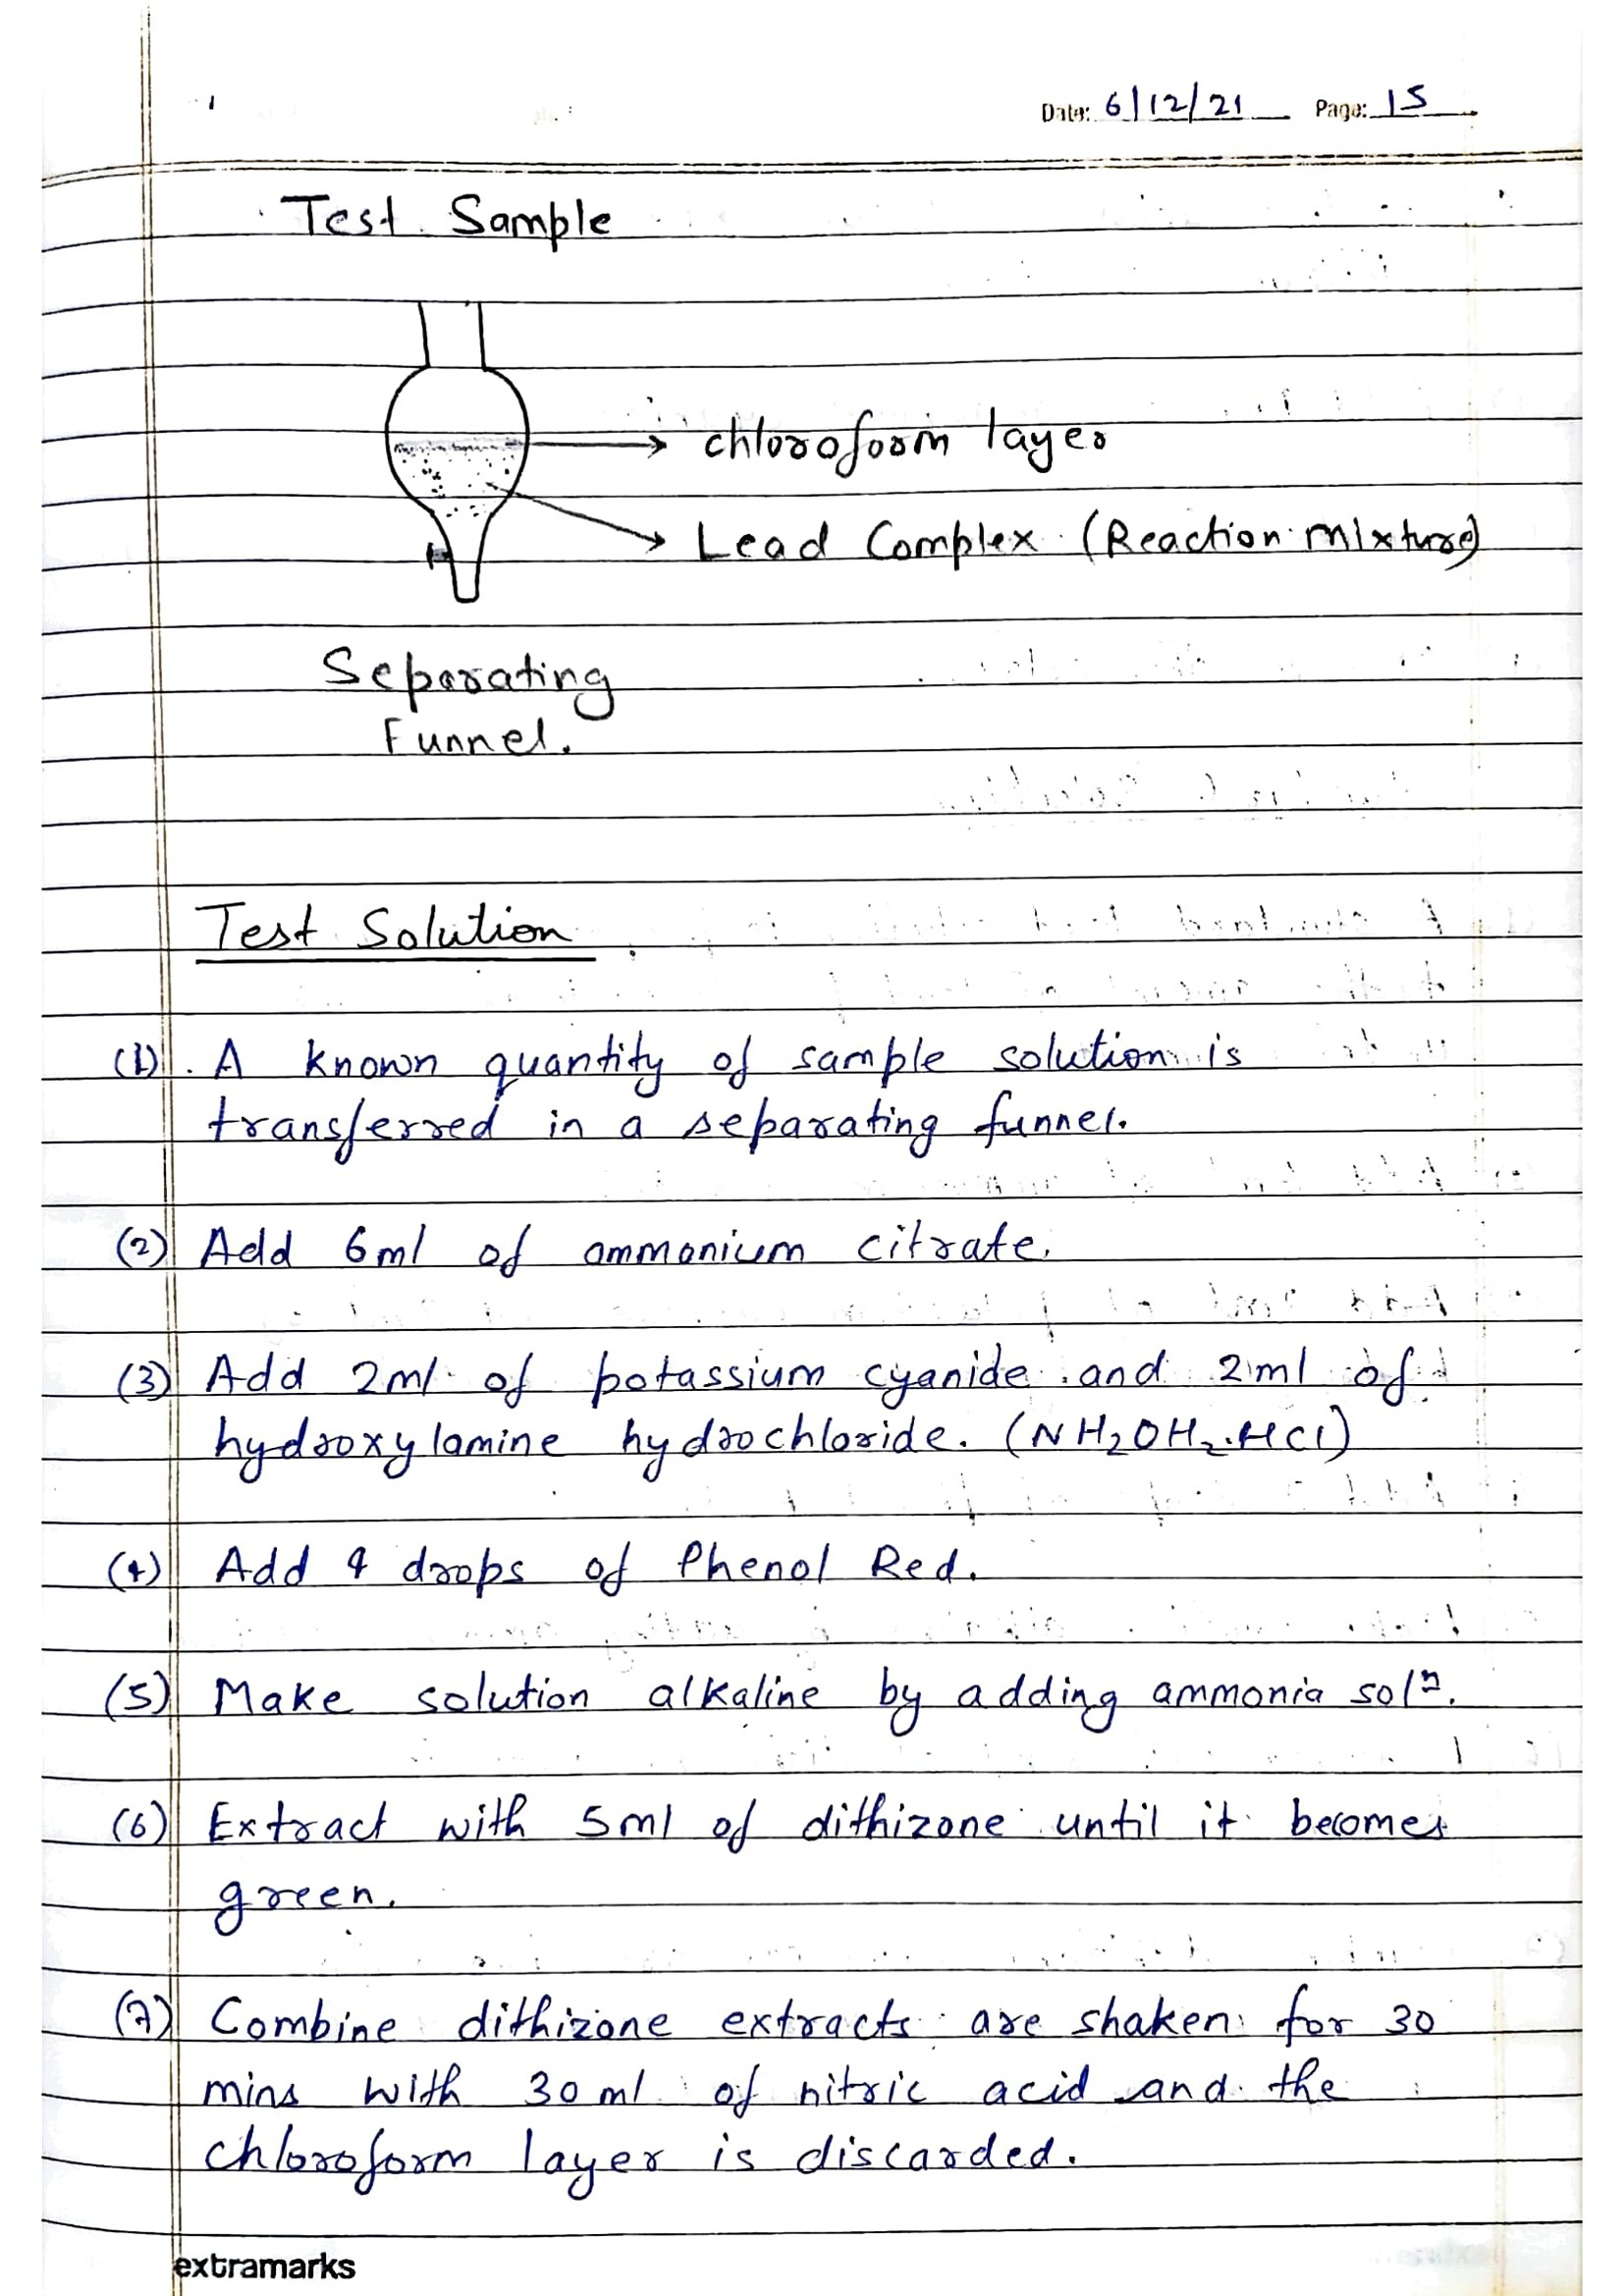 Date: 6/12/21 Page: 15
Test Sample
chloroform layer
Lead Complex (Reaction mixture)
Separating
Funnel.
Test Solution
(1). A known quantity of sample solution is
transferred in a separating funnel.
(2) Add 6ml of ammonium citrate.
(3) Add 2ml of potassium cyanide and 2ml of
hydroxylamine hydrochloride. (NH₂OH₂.HCl)
(4) Add 4 drops of Phenol Red.
(5) Make solution alkaline by adding ammonia solⁿ.
(6) Extract with 5ml of dithizone until it becomes
green.
(7) Combine dithizone extracts are shaken for 30
mins with 30ml of nitric acid and the
chloroform layer is discarded.
extramarks